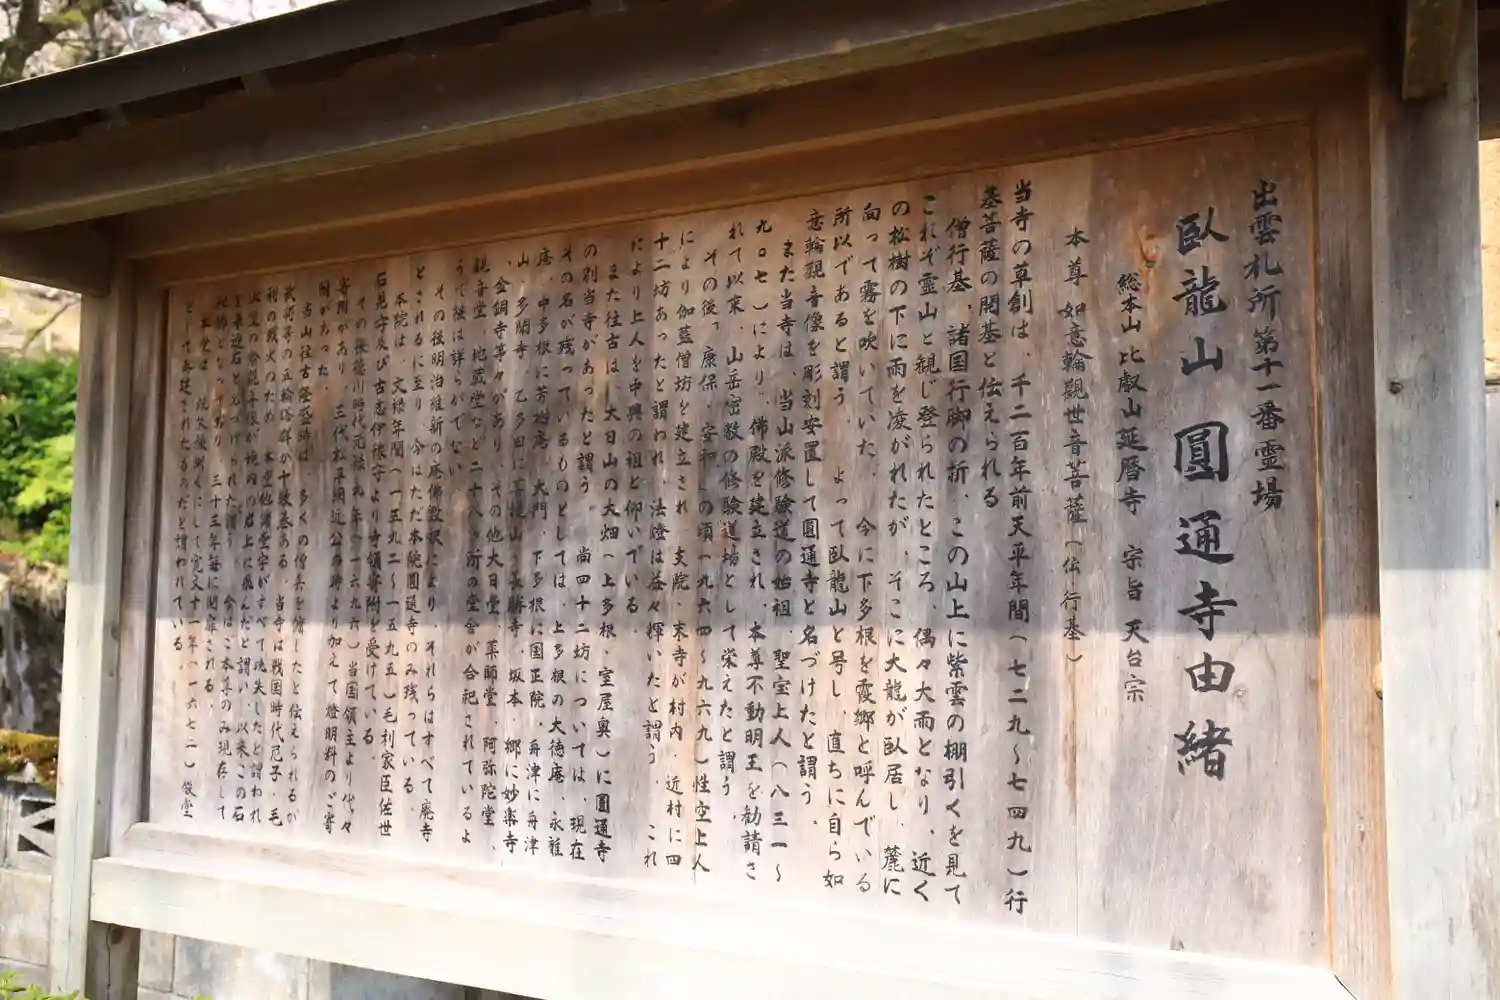 出雲札所第十一番霊場
臥龍山 圓通寺由緒
総本山 比叡山延暦寺 宗旨 天台宗
本尊 如意輪觀世音菩薩(伝・行基)
当寺の草創は、千二百年前天平年間(七二九~七四九)行
基菩薩の開基と伝えられる
僧行基、諸国行脚の折、この山上に紫雲の棚引くを見て
これぞ霊山と観じ登られたところ、偶々大雨となり、近く
の松樹の下に雨を凌がれたが、そこに大龍が臥居し、麓に
向って霧を吹いていた。今に下多根を霞郷と呼んでいる
所以であると謂う。よって臥龍山と号し、直ちに自ら如
意輪觀音像を彫刻安置して圓通寺と名づけたと謂う。
また当寺は、当山派修験道の始祖、聖宝上人(八三一~
九〇七)により、佛殿を建立され、本尊不動明王を勧請さ
れて以来、山岳密教の修験道場として栄えたと謂う。
その後、康保、安和の頃(九六四~九六九)性空上人
により伽藍僧坊を建立され、支院、末寺が村内、近村に四
十二坊あったと謂われ、法燈は益々輝いたと謂う。これ
により上人を中興の祖と仰いでいる。
また往古は、大日山の大畑(上多根・室屋奥)に圓通寺
の別当寺があったと謂う。尚四十二坊については、現在
その名が残っているものとしては、上多根の大徳庵、永雅
庵、中多根に芳梅庵、大門、下多根に国正院、舟津に舟津
山、多聞寺、乙多田に菩提山、長勝寺、坂本、郷に妙楽寺
、金銅寺等々があり、その他大日堂、薬師堂、阿弥陀堂、
観音堂、地蔵堂など二十八ヶ所の堂舎が合祀されているよ
うで後は詳らかでない
その後明治維新の廃佛毀釈により、それらはすべて廃寺
とされるに至り、今はただ本院圓通寺のみ残っている。
本院は、文禄年間(一五九二~一五九五)毛利家臣佐世
石見守及び古志伊予守より寺領寄附を受けている。
その後徳川時代元禄九年(一六九六)当国領主より代々
寄附があり、三代松平綱近公の時より加えて燈明料のご寄
附があった。
当山往古隆盛時は、多くの僧兵を擁したと伝えられるが
武将等の五輪塔群が十数基ある。当寺は戦国時代尼子・毛
利の戦火のため、本堂他諸堂宇がすべて焼失したと謂われ
を飛迎石と名づけられた謂う。今はこ本尊のみ現存して
秘佛となっており、三十三年毎に開扉される。
として再建されたものだと謂われている。